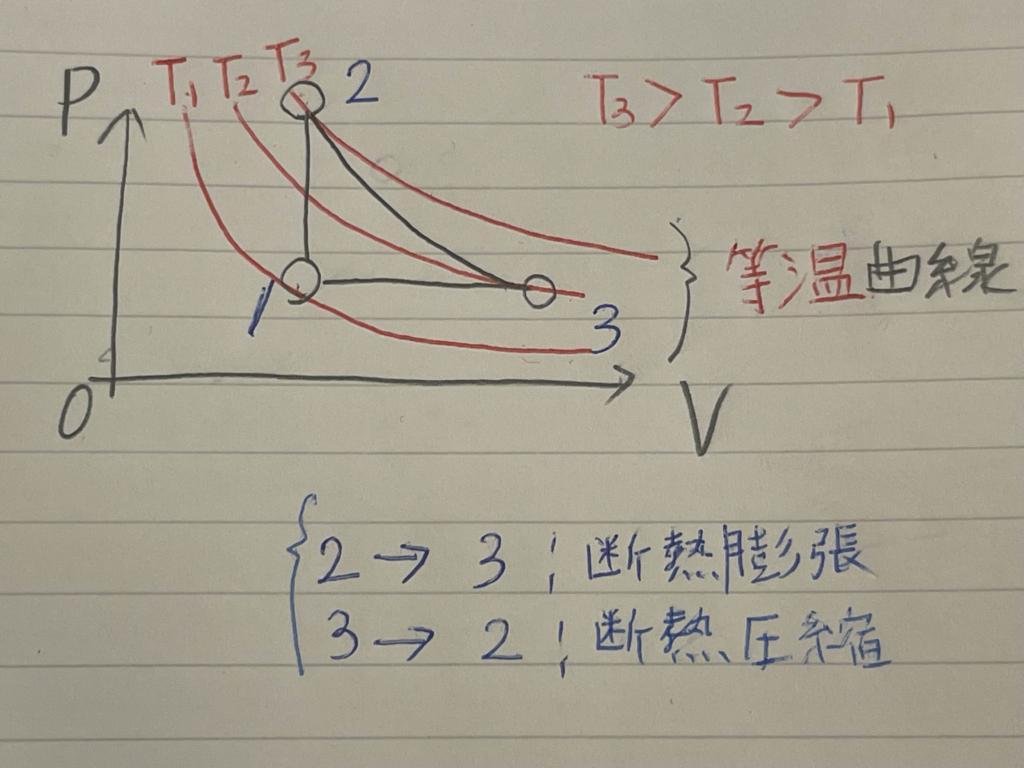 P
T₁ T₂ T₃ 2
T₃ > T₂ > T₁
等温曲線
1
3
O
V
2 → 3 ; 断熱膨張
3 → 2 ; 断熱圧縮